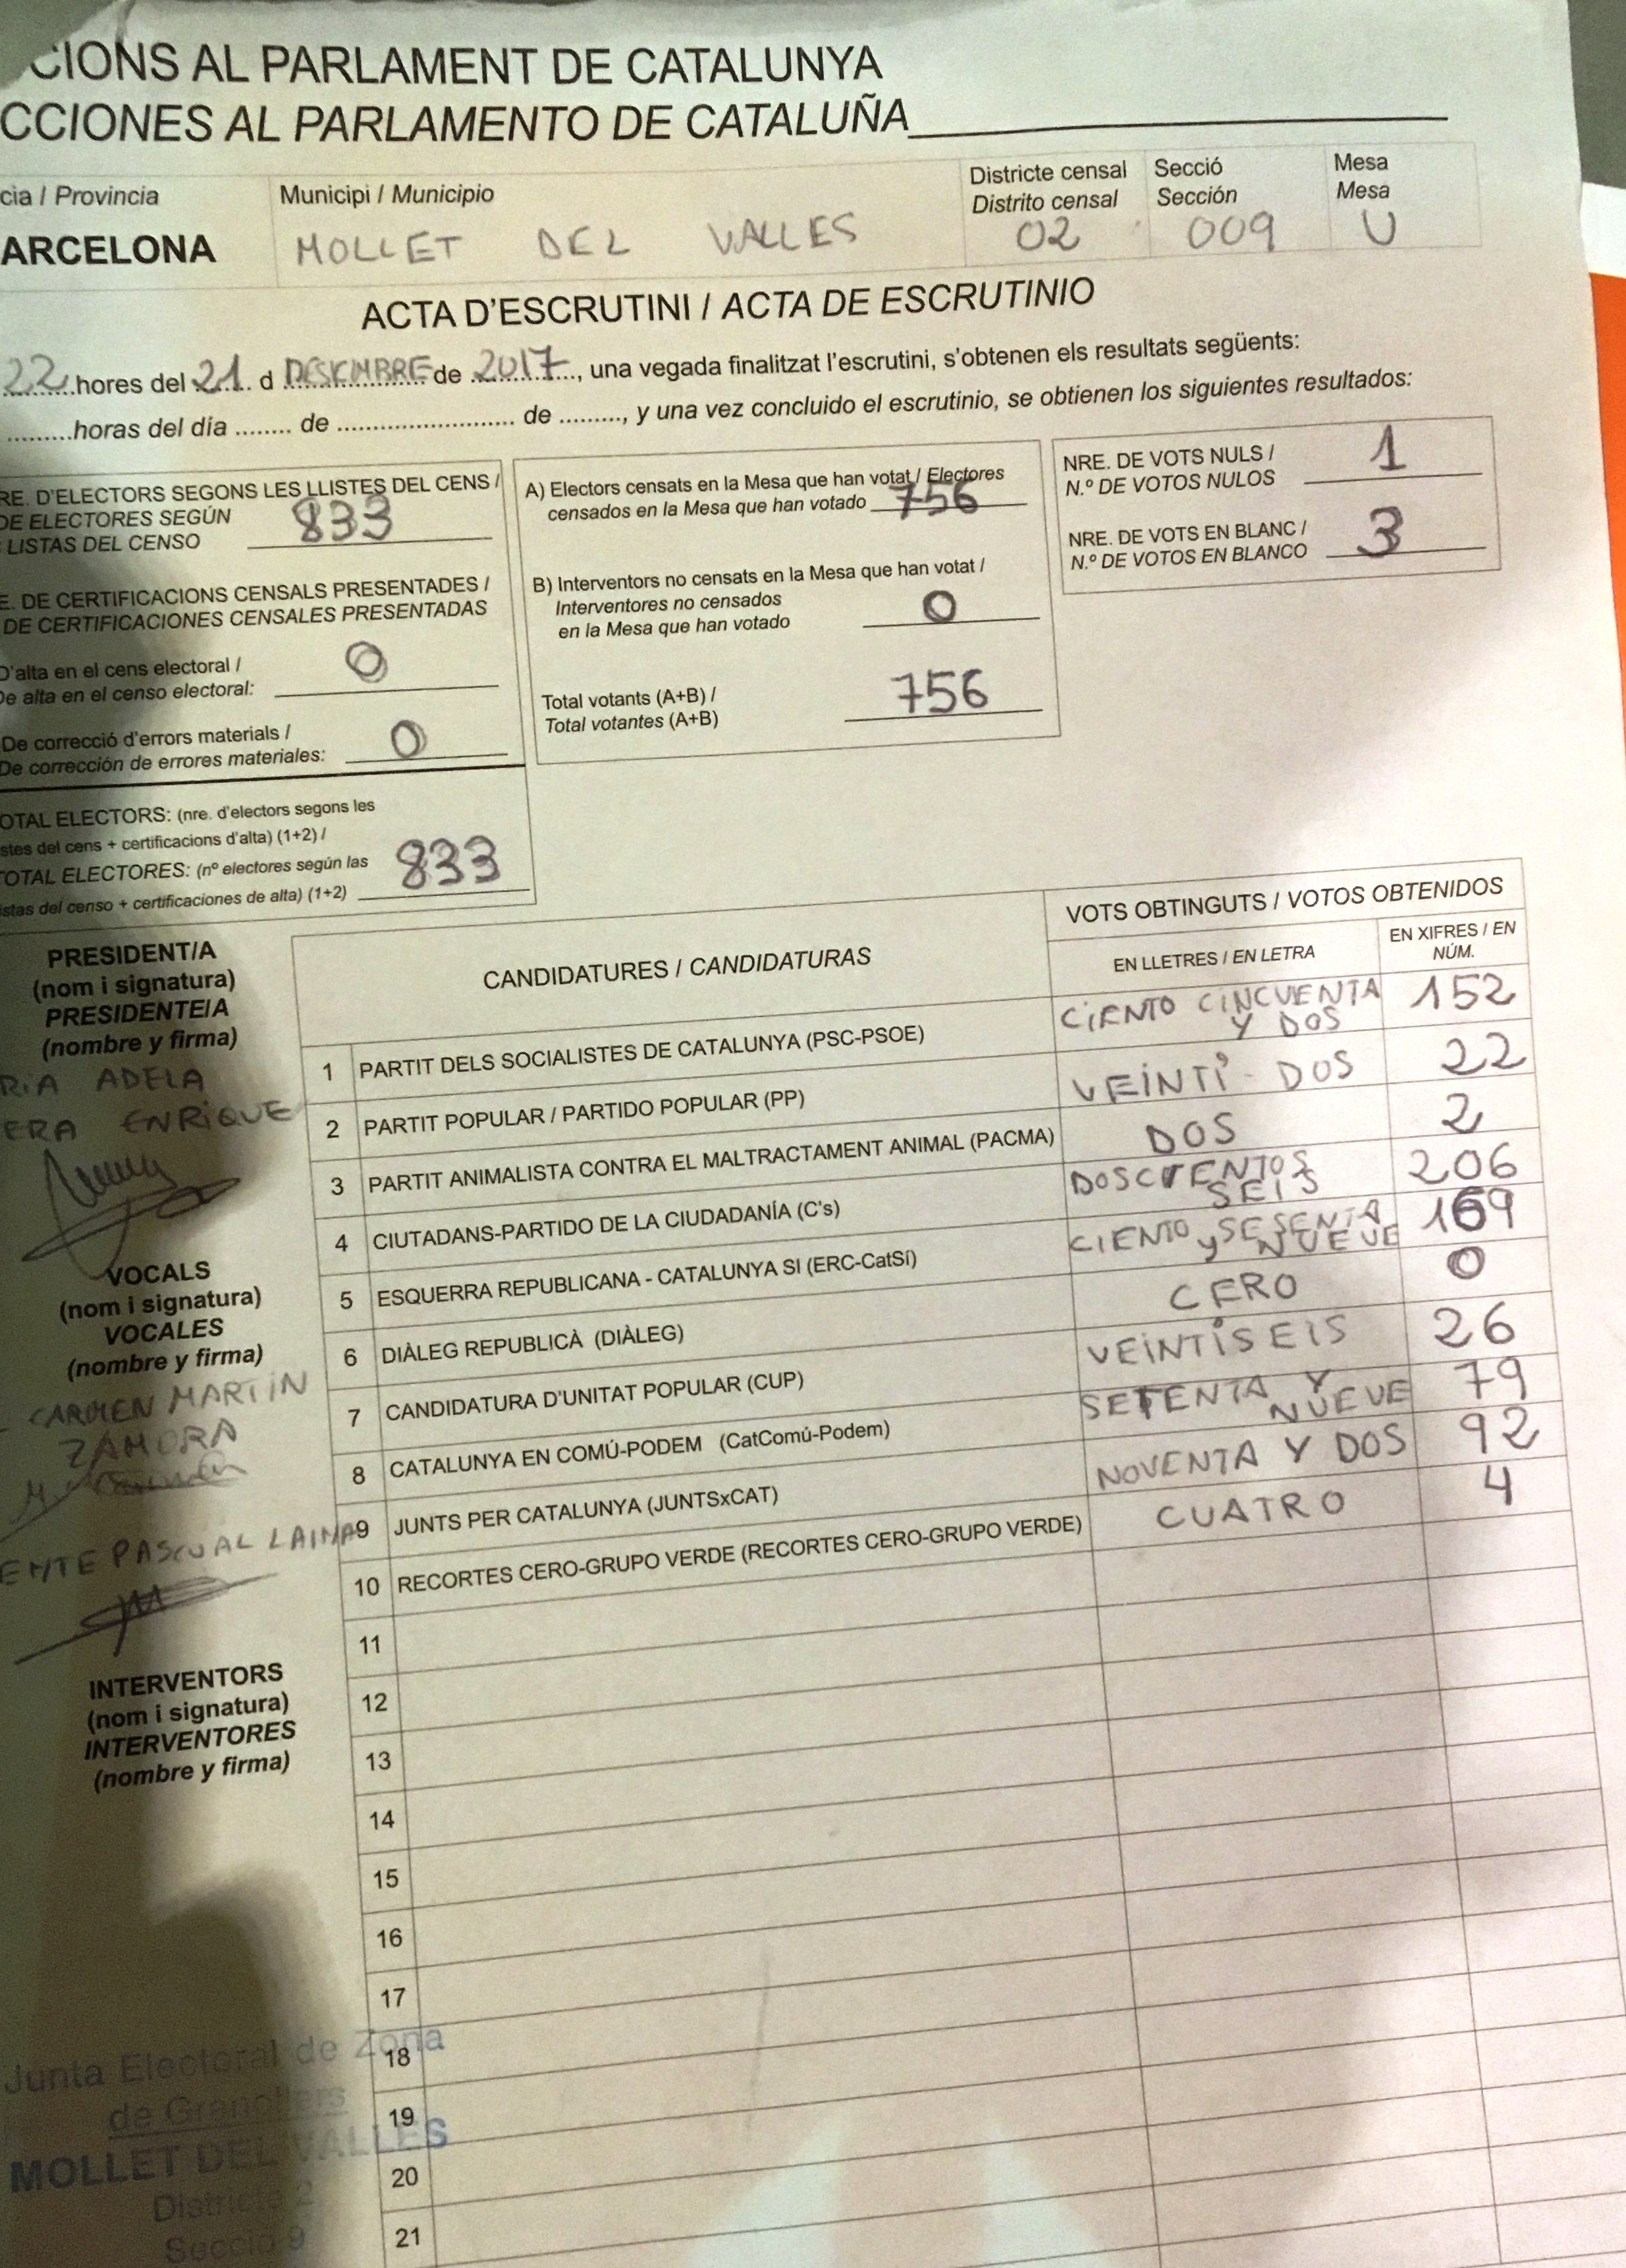 CIONS AL PARLAMENT DE CATALUNYA
CCIONES AL PARLAMENTO DE CATALUÑA
cia / Provincia
ARCELONA
Municipi / Municipio
MOLLET DEL VALLES
Districte censal
Distrito censal
02
Secció
Sección
009
Mesa
Mesa
U
ACTA D'ESCRUTINI / ACTA DE ESCRUTINIO
22 hores del 21 d DESEMBRE de 2017, una vegada finalitzat l'escrutini, s'obtenen els resultats següents:
.........horas del día ........ de ......................... de ........., y una vez concluido el escrutinio, se obtienen los siguientes resultados:
RE. D'ELECTORS SEGONS LES LLISTES DEL CENS /
DE ELECTORES SEGÚN
LISTAS DEL CENSO 833
E. DE CERTIFICACIONS CENSALS PRESENTADES /
DE CERTIFICACIONES CENSALES PRESENTADAS
D'alta en el cens electoral /
De alta en el censo electoral: 0
De correcció d'errors materials /
De corrección de errores materiales: 0
OTAL ELECTORS: (nre. d'electors segons les
stes del cens + certificacions d'alta) (1+2) /
TOTAL ELECTORES: (nº electores según las
istas del censo + certificaciones de alta) (1+2) 833
A) Electors censats en la Mesa que han votat / Electores
censados en la Mesa que han votado 756
B) Interventors no censats en la Mesa que han votat /
Interventores no censados
en la Mesa que han votado 0
Total votants (A+B) /
Total votantes (A+B) 756
NRE. DE VOTS NULS /
N.º DE VOTOS NULOS 1
NRE. DE VOTS EN BLANC /
N.º DE VOTOS EN BLANCO 3
PRESIDENT/A
(nom i signatura)
PRESIDENTE/A
(nombre y firma)
RIA ADELA
ERA ENRIQUE
VOCALS
(nom i signatura)
VOCALES
(nombre y firma)
CARMEN MARTIN
ZAMORA
ENTE PASCUAL LAINA
INTERVENTORS
(nom i signatura)
INTERVENTORES
(nombre y firma)
CANDIDATURES / CANDIDATURAS
VOTS OBTINGUTS / VOTOS OBTENIDOS
EN LLETRES / EN LETRA
EN XIFRES / EN
NÚM.
1 PARTIT DELS SOCIALISTES DE CATALUNYA (PSC-PSOE) CIENTO CINCUENTA Y DOS 152
2 PARTIT POPULAR / PARTIDO POPULAR (PP) VEINTI-DOS 22
3 PARTIT ANIMALISTA CONTRA EL MALTRACTAMENT ANIMAL (PACMA) DOS 2
4 CIUTADANS-PARTIDO DE LA CIUDADANÍA (C's) DOSCIENTOS SEIS 206
5 ESQUERRA REPUBLICANA - CATALUNYA SI (ERC-CatSí) CIENTO y SESENTA NUEVE 169
6 DIÀLEG REPUBLICÀ (DIÀLEG) CERO 0
7 CANDIDATURA D'UNITAT POPULAR (CUP) VEINTISEIS 26
8 CATALUNYA EN COMÚ-PODEM (CatComú-Podem) SETENTA Y NUEVE 79
9 JUNTS PER CATALUNYA (JUNTSxCAT) NOVENTA Y DOS 92
10 RECORTES CERO-GRUPO VERDE (RECORTES CERO-GRUPO VERDE) CUATRO 4
11
12
13
14
15
16
17
18
19
20
21
Junta Electoral de Zona
de Granollers
MOLLET DEL VALLES
Districte 2
Secció 9